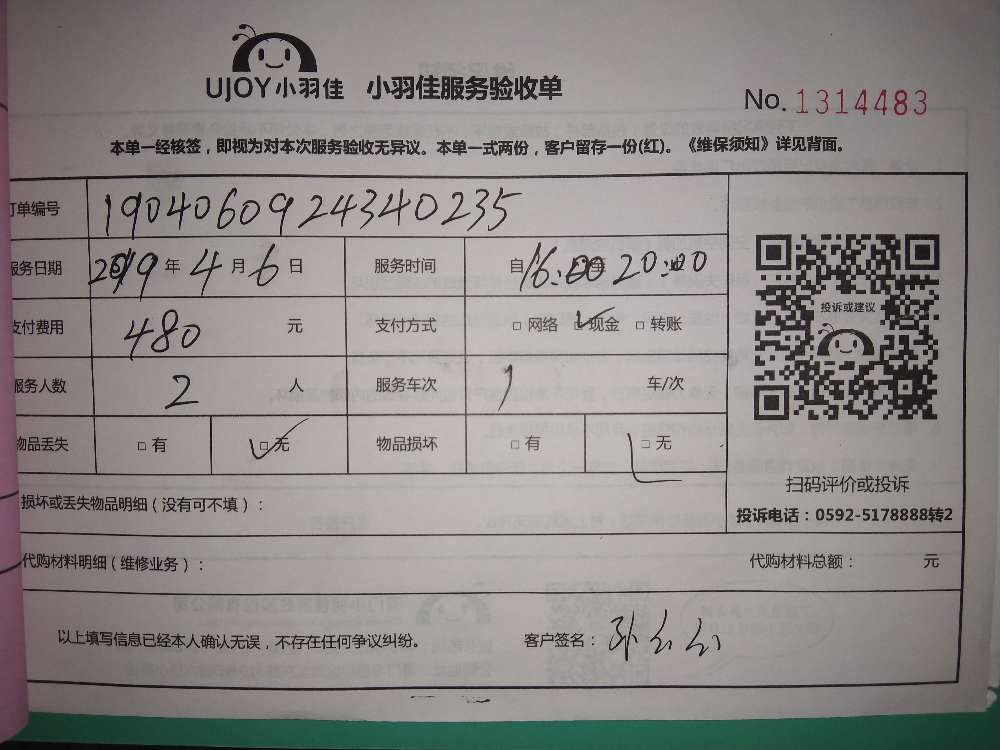 UJOY小羽佳 小羽佳服务验收单
No. 1314483
本单一经核签，即视为对本次服务验收无异议。本单一式两份，客户留存一份(红)。《维保须知》详见背面。
订单编号 1904060924340235
服务日期 2019 年 4 月 6 日 服务时间 自 16:00 至 20:00
支付费用 480 元 支付方式 □ 网络 ☑ 现金 □ 转账
服务人数 2 人 服务车次 1 车/次
物品丢失 □ 有 ☑ 无 物品损坏 □ 有 ☑ 无
投诉或建议
扫码评价或投诉
投诉电话：0592-5178888转2
损坏或丢失物品明细（没有可不填）：
代购材料明细（维修业务）： 代购材料总额： 元
以上填写信息已经本人确认无误，不存在任何争议纠纷。 客户签名：